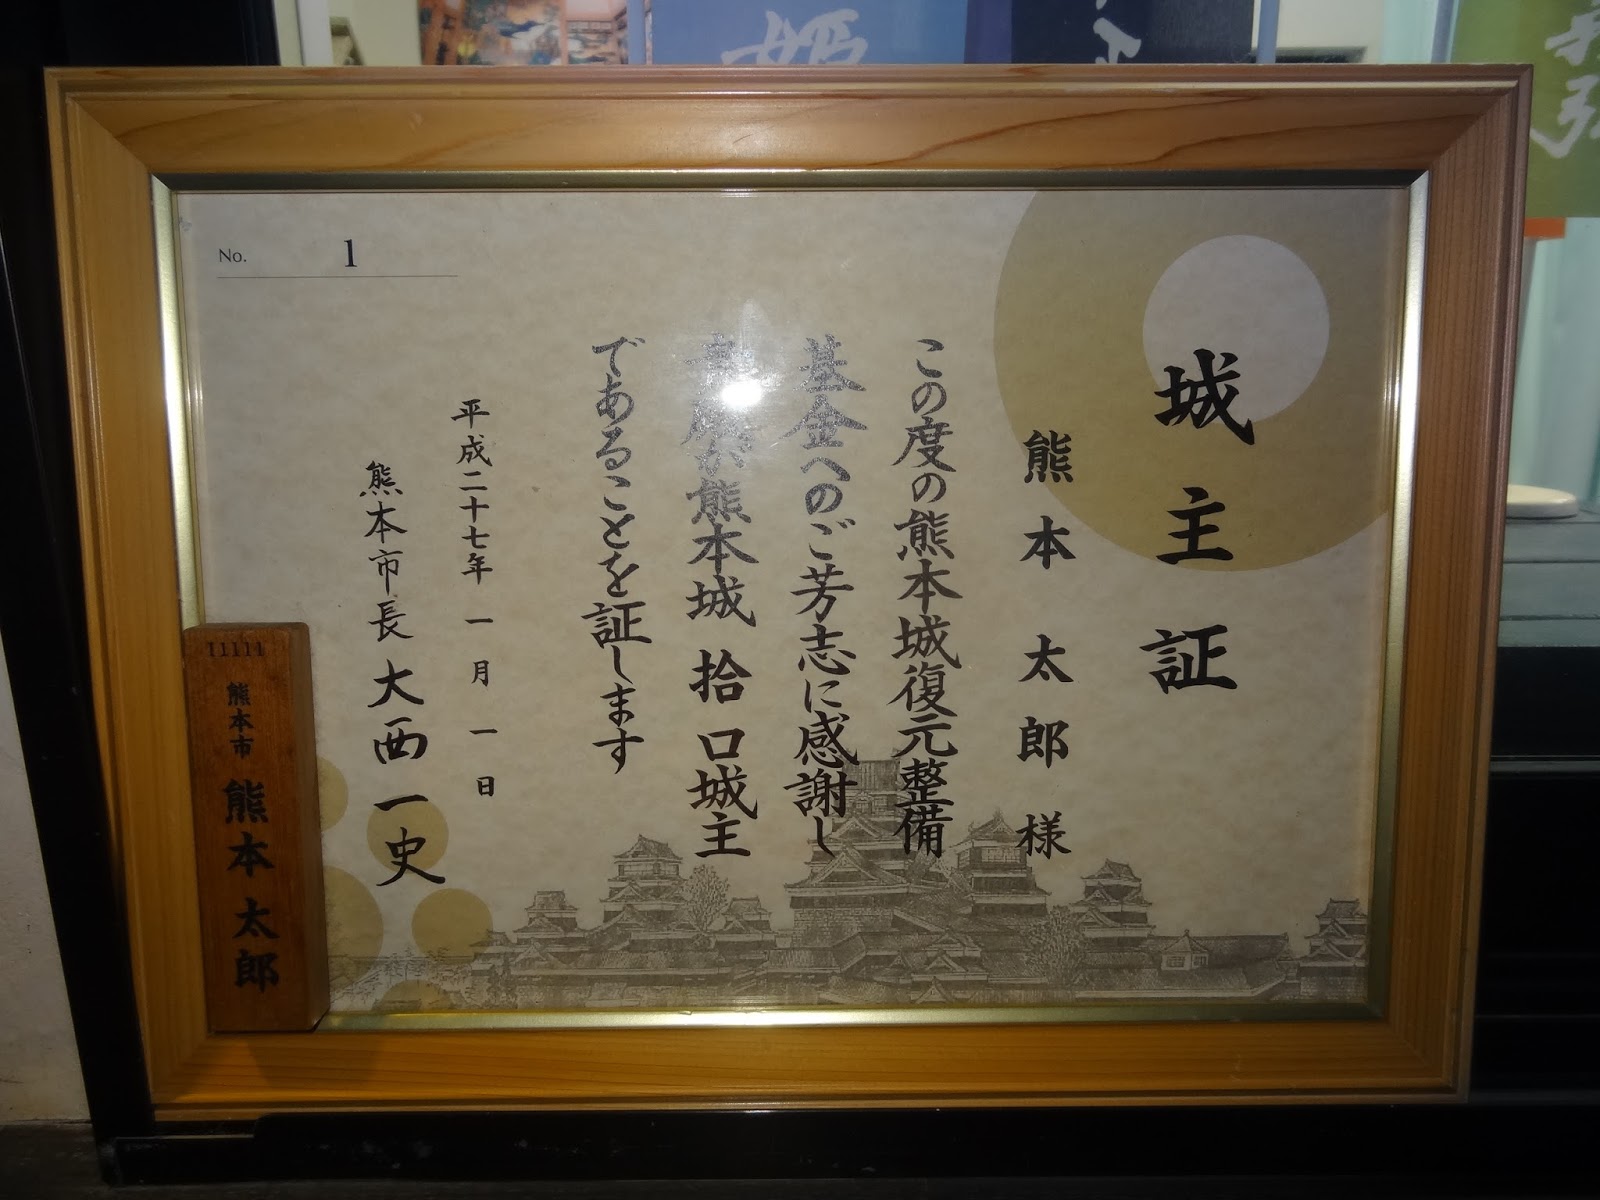 城主証
熊本太郎様
この度の熊本城復元整備
基金へのご芳志に感謝し
貴殿が熊本城拾口城主
であることを証します
平成二十七年一月一日
熊本市長 大西一史
No. 1
11111
熊本市 熊本太郎
姫